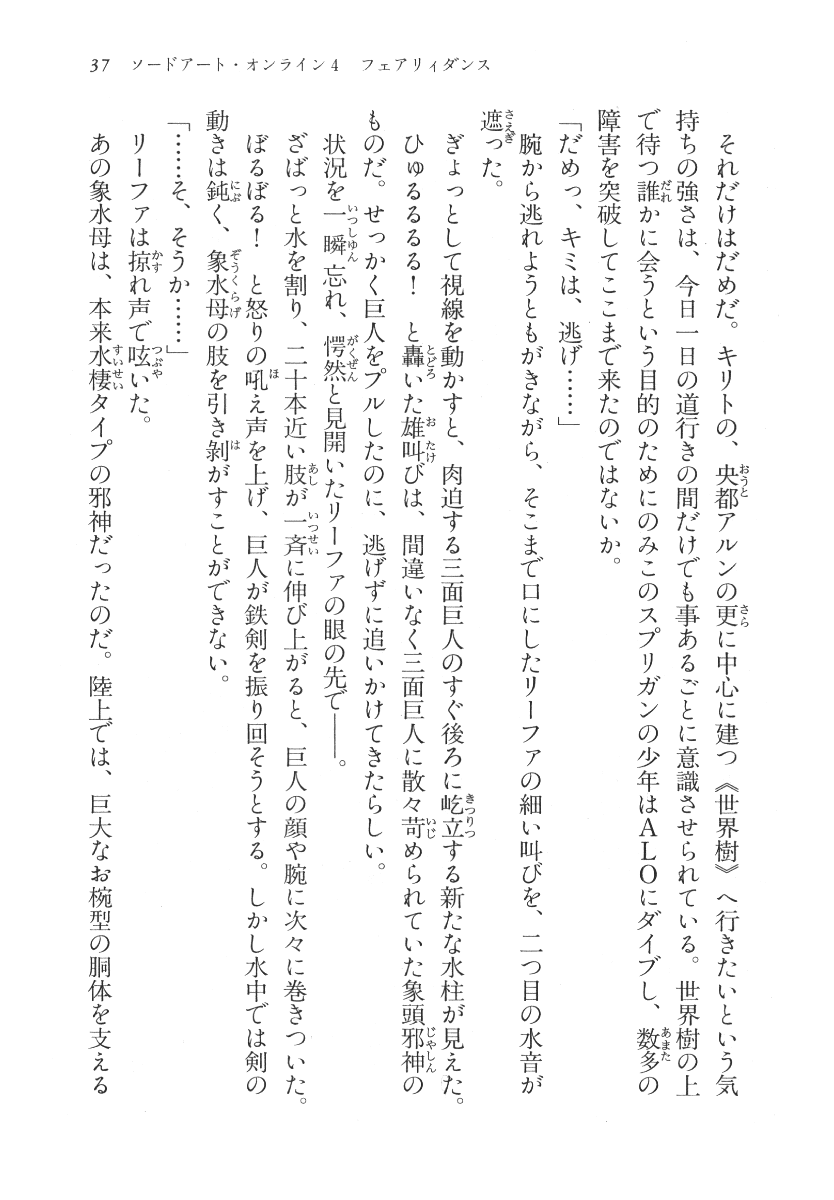 37　ソードアート・オンライン4　フェアリィダンス
　それだけはだめだ。キリトの、央都アルンの更に中心に建つ《世界樹》へ行きたいという気
持ちの強さは、今日一日の道行きの間だけでも事あるごとに意識させられている。世界樹の上
で待つ誰かに会うという目的のためにのみこのスプリガンの少年はＡＬＯにダイブし、数多の
障害を突破してここまで来たのではないか。
「だめっ、キミは、逃げ……」
　腕から逃れようともがきながら、そこまで口にしたリーファの細い叫びを、二つ目の水音が
遮った。
　ぎょっとして視線を動かすと、肉迫する三面巨人のすぐ後ろに屹立する新たな水柱が見えた。
　ひゅるるるる！　と轟いた雄叫びは、間違いなく三面巨人に散々苛められていた象頭邪神の
ものだ。せっかく巨人をプルしたのに、逃げずに追いかけてきたらしい。
　状況を一瞬忘れ、愕然と見開いたリーファの眼の先で――。
　ざばっと水を割り、二十本近い肢が一斉に伸び上がると、巨人の顔や腕に次々に巻きついた。
　ぼるぼる！　と怒りの吼え声を上げ、巨人が鉄剣を振り回そうとする。しかし水中では剣の
動きは鈍く、象水母の肢を引き剝がすことができない。
「……そ、そうか……」
　リーファは掠れ声で呟いた。
　あの象水母は、本来水棲タイプの邪神だったのだ。陸上では、巨大なお椀型の胴体を支える